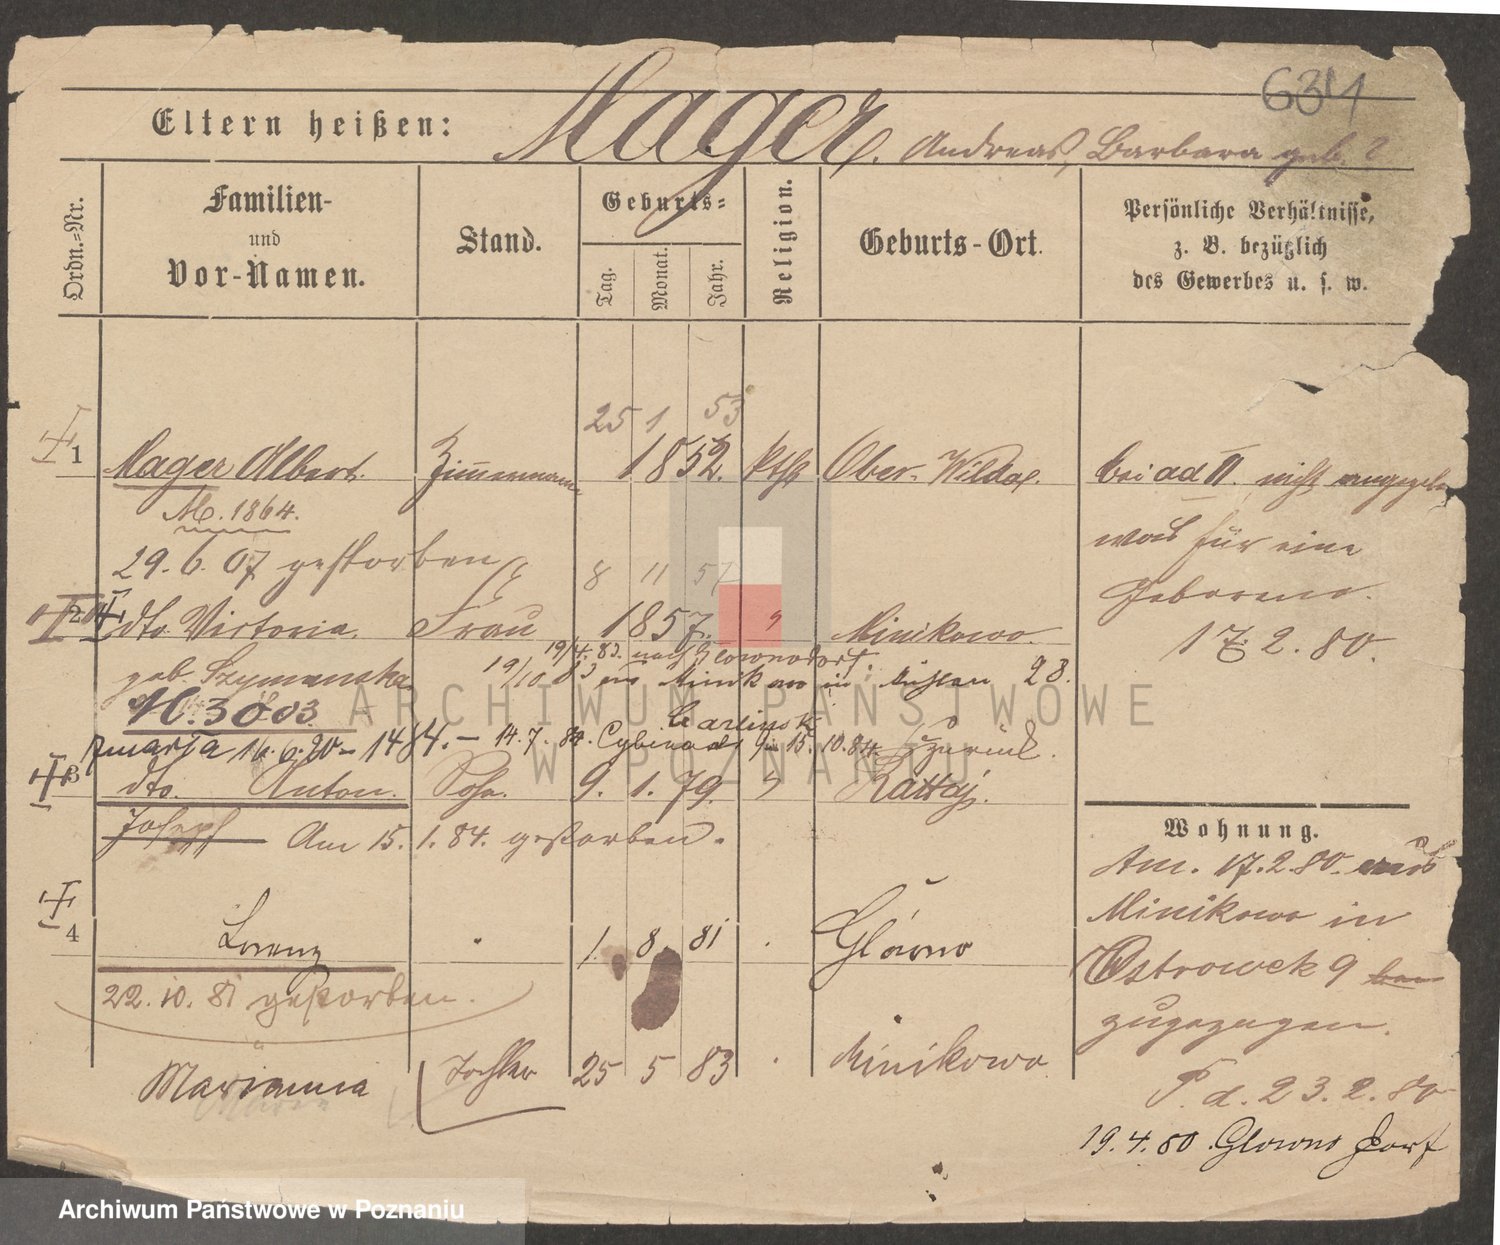 6314
Eltern heißen: Mager. Andreas, Barbara geb. ?
Ordn.=Nr.
Familien-
und
Vor-Namen.
Stand.
Geburts=
Tag.
Monat.
Jahr.
Religion.
Geburts-Ort.
Persönliche Verhältnisse,
z. B. bezüglich
des Gewerbes u. s. w.
25 1 53
1 Mager Albert. Zimmermann 1852. kth Ober-Wilda. bei ad II. nicht angegeben
M. 1864.
was für eine
29. 6. 07 gestorben
8 11 57
Geborene.
2 dto. Victoria. Frau 1857. " Minikowo.
17. 2. 80.
19/4. 83. nach Glownodorf.
geb. Szymanska 19/10 83 Minikowo in 23.
H. 3803.
zmarła 16.6.20 - 1484. - 14. 7. 84. 15. 10. 84 zurück.
3 dto. Anton. Sohn. 9. 1. 79. " Rattaj.
Joseph Am 15. 1. 84. gestorben.
Wohnung.
Am. 17. 2. 80. aus
Minikowo in
4 Lorenz 1. 8. 81 Główno
Ostrowek 9
22. 10. 81 gestorben.
zugezogen.
Marianna Tochter 25 5 83 Minikowo
P. d. 23. 2. 80
19. 4. 80. Glowno Dorf
ARCHIWUM PAŃSTWOWE
W POZNANIU
Archiwum Państwowe w Poznaniu